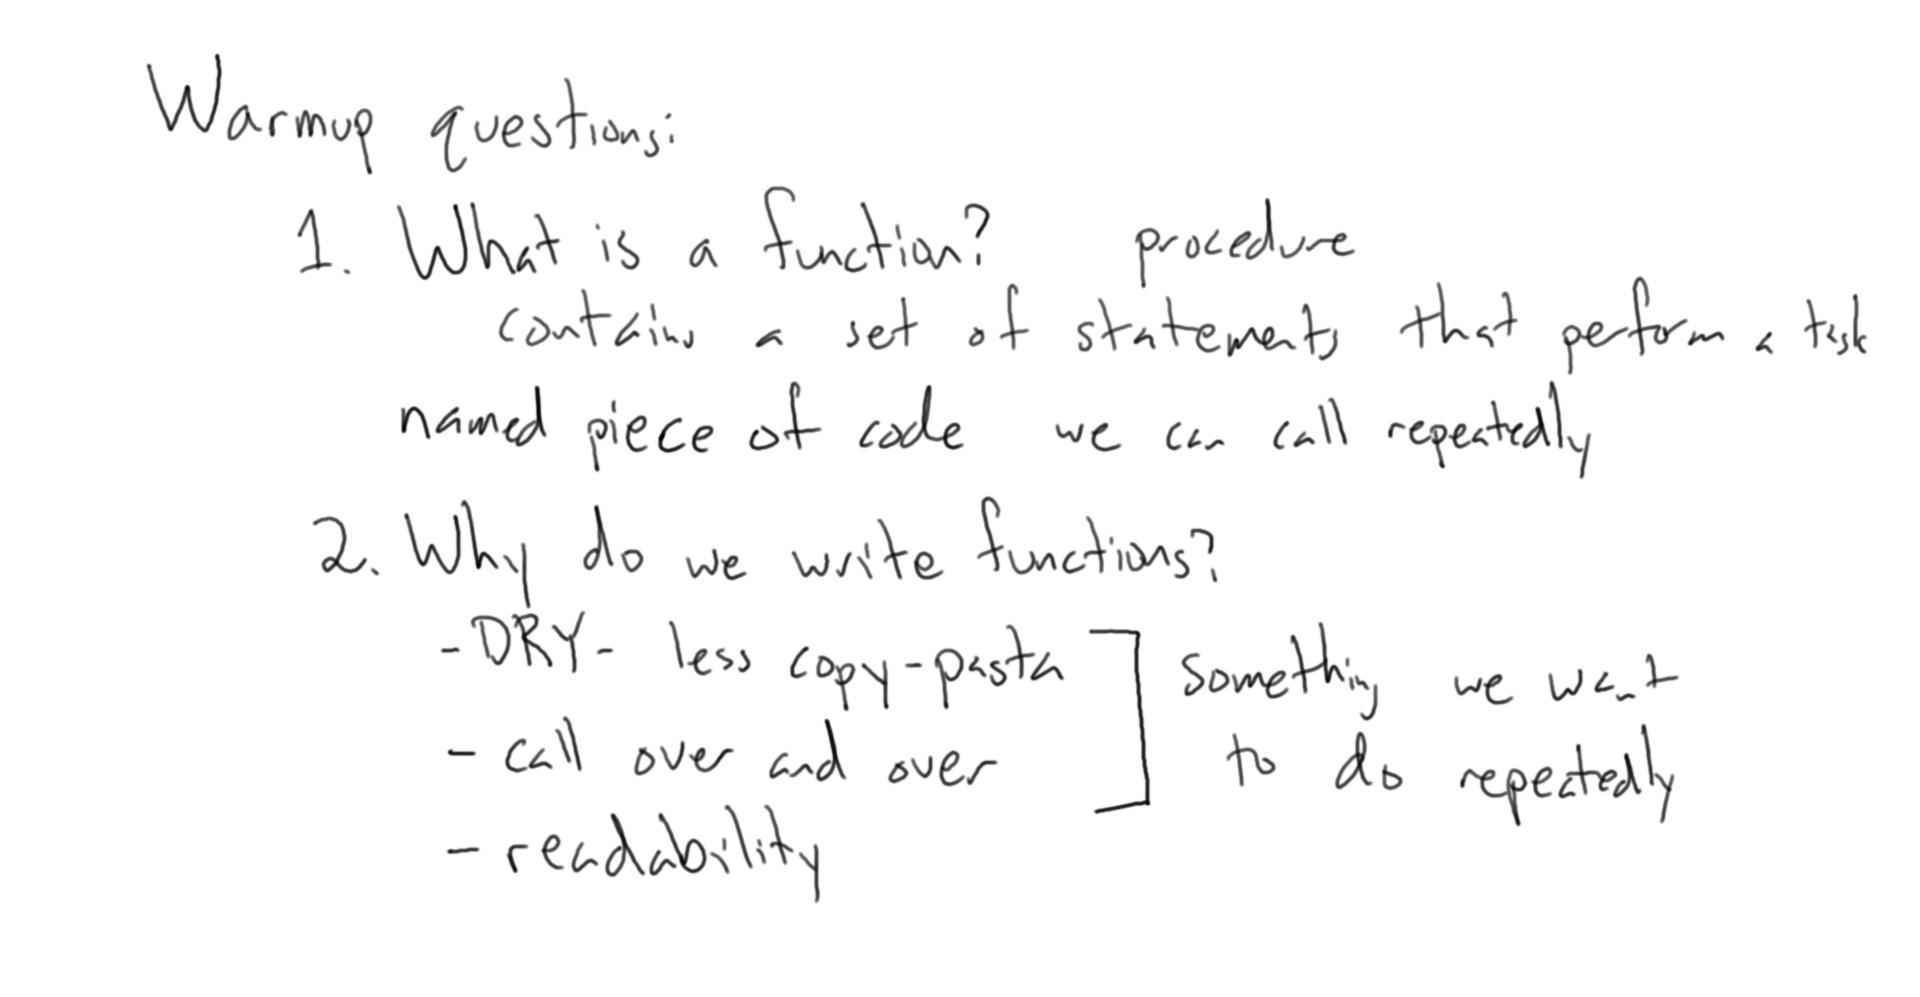 Warmup questions:
1. What is a function? procedure
contains a set of statements that perform a task
named piece of code we can call repeatedly
2. Why do we write functions?
- DRY - less copy-pasta
- call over and over
- readability
something we want
to do repeatedly